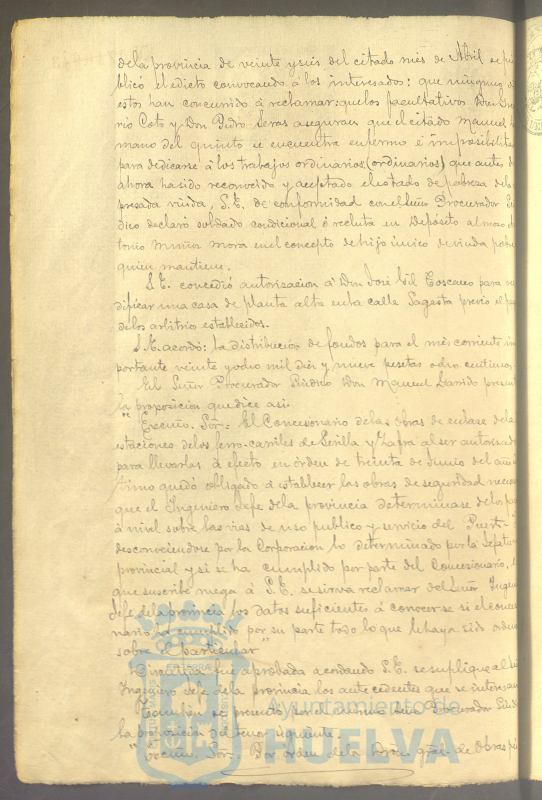 de la provincia de veinte y seis del citado mes de Abril se pu
blicó el edicto convocando á los interesados: que ninguno de
estos han concurrido á reclamar: que los facultativos Don
rio Coto y Don Pedro Seras aseguran que el citado Manuel
mano del quinto se encuentra enfermo é imposibilita
para dedicarse á los trabajos ordinarios (ordinarios) que antes de
ahora ha sido reconocido y aceptado el estado de pobreza de la
presada viuda, S.E. de conformidad con el Señor Procurador Sín
dico declaró soldado condicional ó recluta en Depósito al mozo
tonio Muñiz Mora en el concepto de hijo único de viuda pobre
quien mantiene.
S.E. concedió autorizacion á Don José Gil Toscano para
dificar una casa de planta alta en la calle Sagasta previo el
de los arbitrios establecidos.
S.E. acordó: la distribucion de fondos para el mes corriente im
portante veinte y ocho mil diez y nueve pesetas ocho centimos
El Señor Procurador Síndico Don Manuel Garrido presen
la proposicion que dice asi:
"Excmo. Sor.: El Concesionario de las obras de enlase de las
estaciones de los ferro-carriles de Sevilla y Zafra al ser autorisado
para llevarlas á efecto en órden de treinta de Junio del año
timo quedó obligado á establecer las obras de seguridad nece
que el Ingeniero Jefe de la provincia determinase de los pasos
á nivel sobre las vias de uso publico y servicio del Puerto
desconociendose por la Corporacion lo determinado por la Jefatu
provincial y si se ha cumplido por parte del Concesionario,
que suscribe ruega á S.E. se sirva reclamar del Señor Ingen
Jefe de la provincia los datos suficientes á conocerse si el conce
nario ha cumplido por su parte todo lo que le haya sido orden
sobre el particular"
Discutida fué aprobada acordando S.E. se suplique al Señor
Ingeniero Jefe de la provincia los antecedentes que se interesan
Tambien se presentó por el mismo Señor Procurador Síndi
la proposicion del tenor siguiente:
"Excmo. Sor.: Por orden de la Dirон gral. de Obras pú
Ayuntamiento de
HUELVA